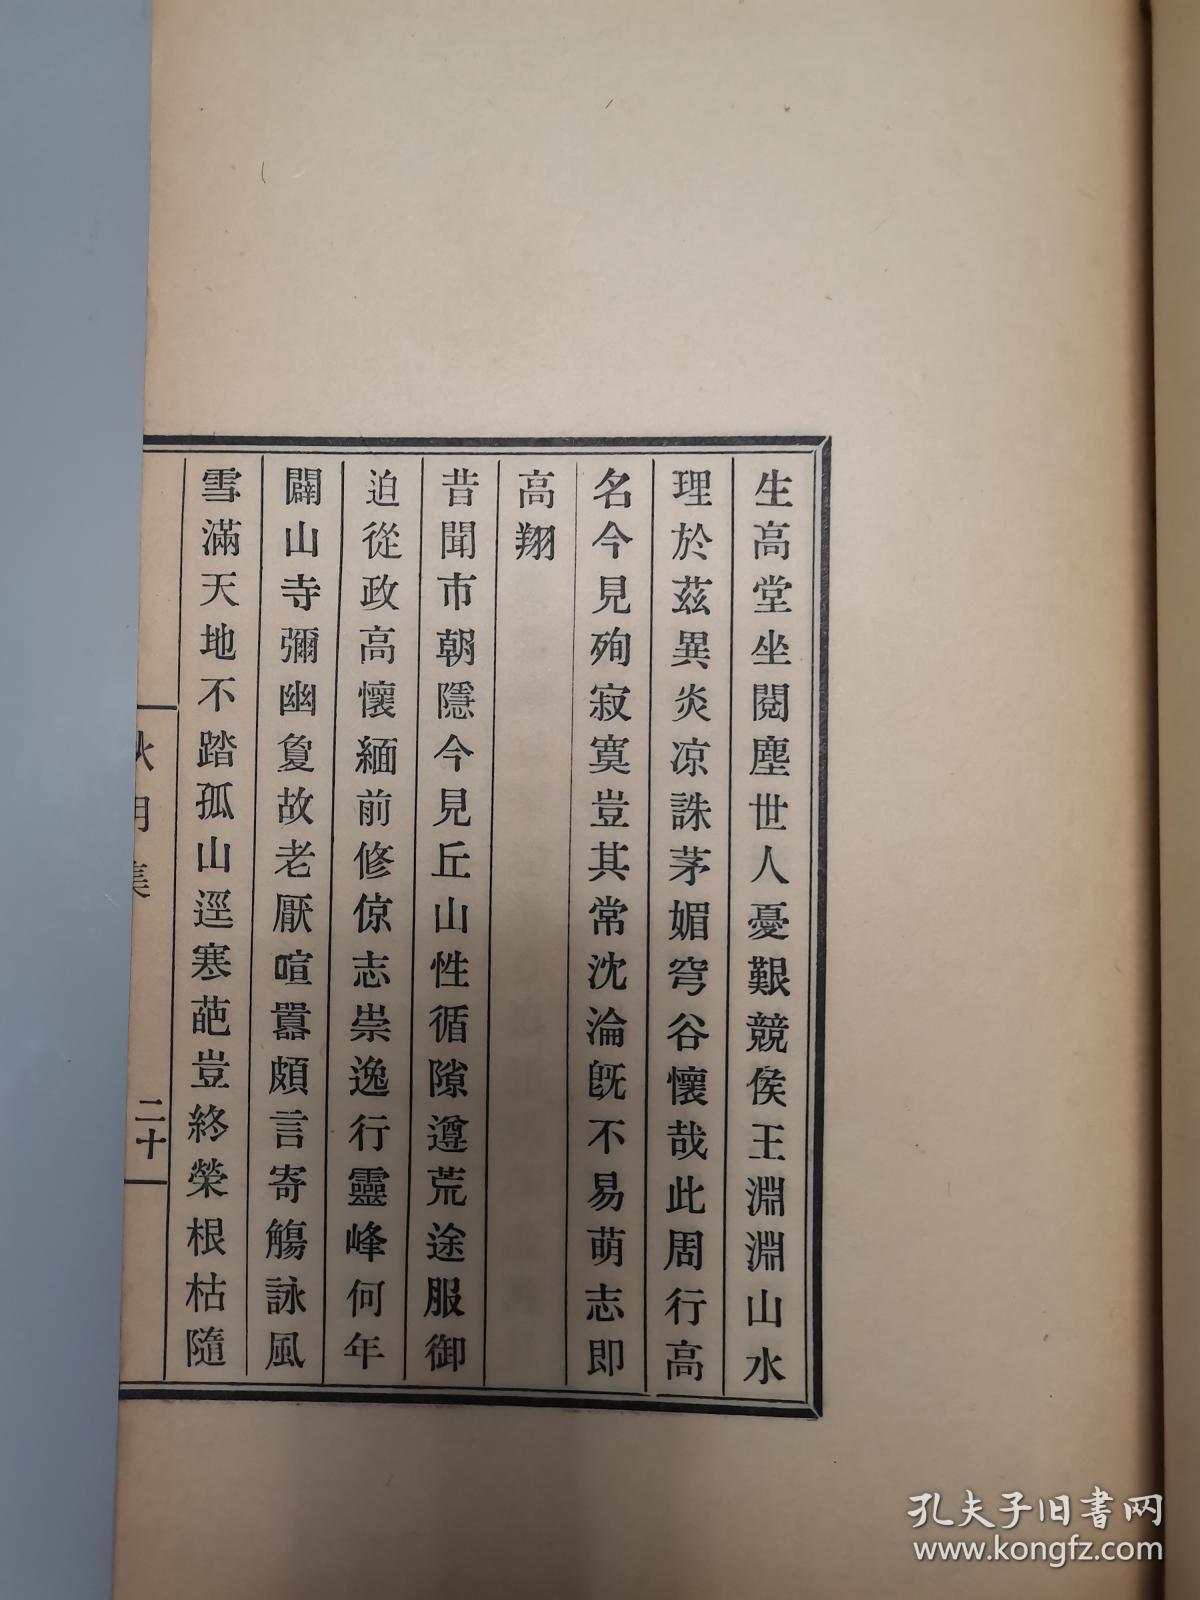 生高堂坐閱塵世人憂艱競侯王淵淵山水
理於茲異炎凉誅茅媚穹谷懷哉此周行高
名今見殉寂寞豈其常沈淪旣不易萌志即
高翔
昔聞市朝隱今見丘山性循隙遵荒途服御
迫從政高懷緬前修倞志崇逸行靈峰何年
闢山寺彌幽敻故老厭喧囂頗言寄觴詠風
雪滿天地不踏孤山逕寒葩豈終榮根枯隨
秋明集
二十
孔夫子旧书网
www.kongfz.com